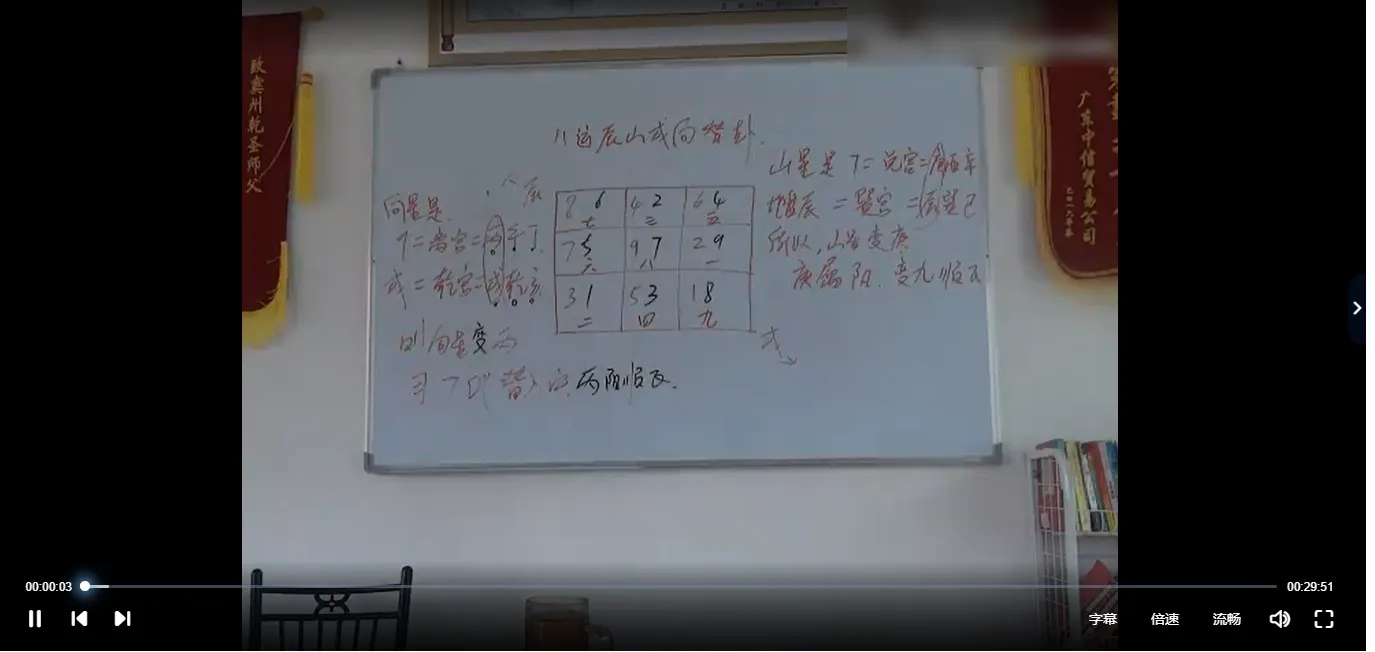 致寞州乾圣师父
广东中信贸易公司
二〇一六年冬
八运辰山戌向替卦.
山星是7=兑宫=庚酉辛
地盘辰=巽宫=辰巽巳
所以,山星变庚
庚属阳.变九顺飞
向星是.
9=离宫=丙午丁
戌=乾宫=戌乾亥
则向星变丙
丙阳顺飞.
辰
8 6 4 2 6 4
七 三 五
7 5 9 7 2 9
六 八 一
3 1 5 3 1 8
二 四 九
戌
00:00:03
00:29:51
字幕 倍速 流畅